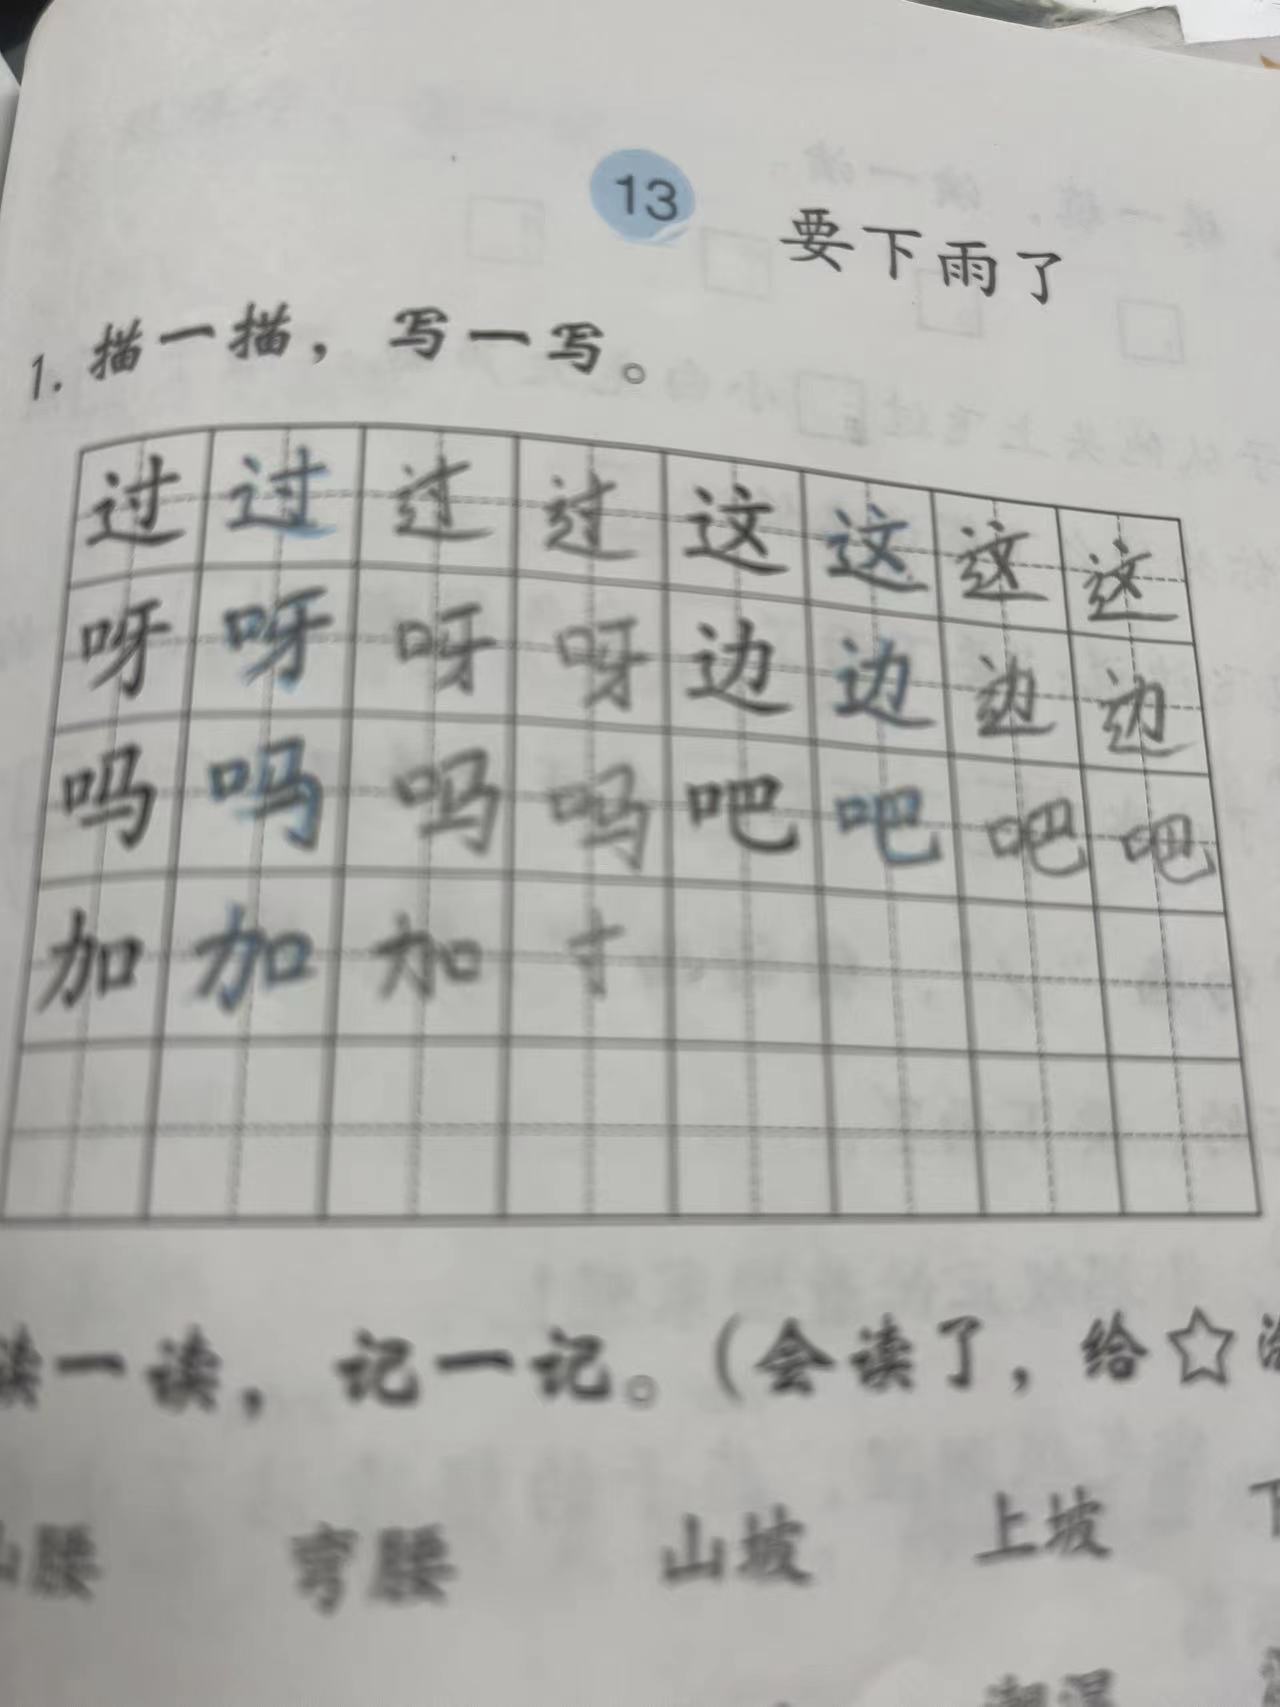 13 要下雨了
1. 描一描，写一写。
过 过 过 过 这 这 这 这
呀 呀 呀 呀 边 边 边 边
吗 吗 吗 吗 吧 吧 吧 吧
加 加 加
读一读，记一记。（会读了，给☆涂
山腰 弯腰 山坡 上坡 下
潮湿